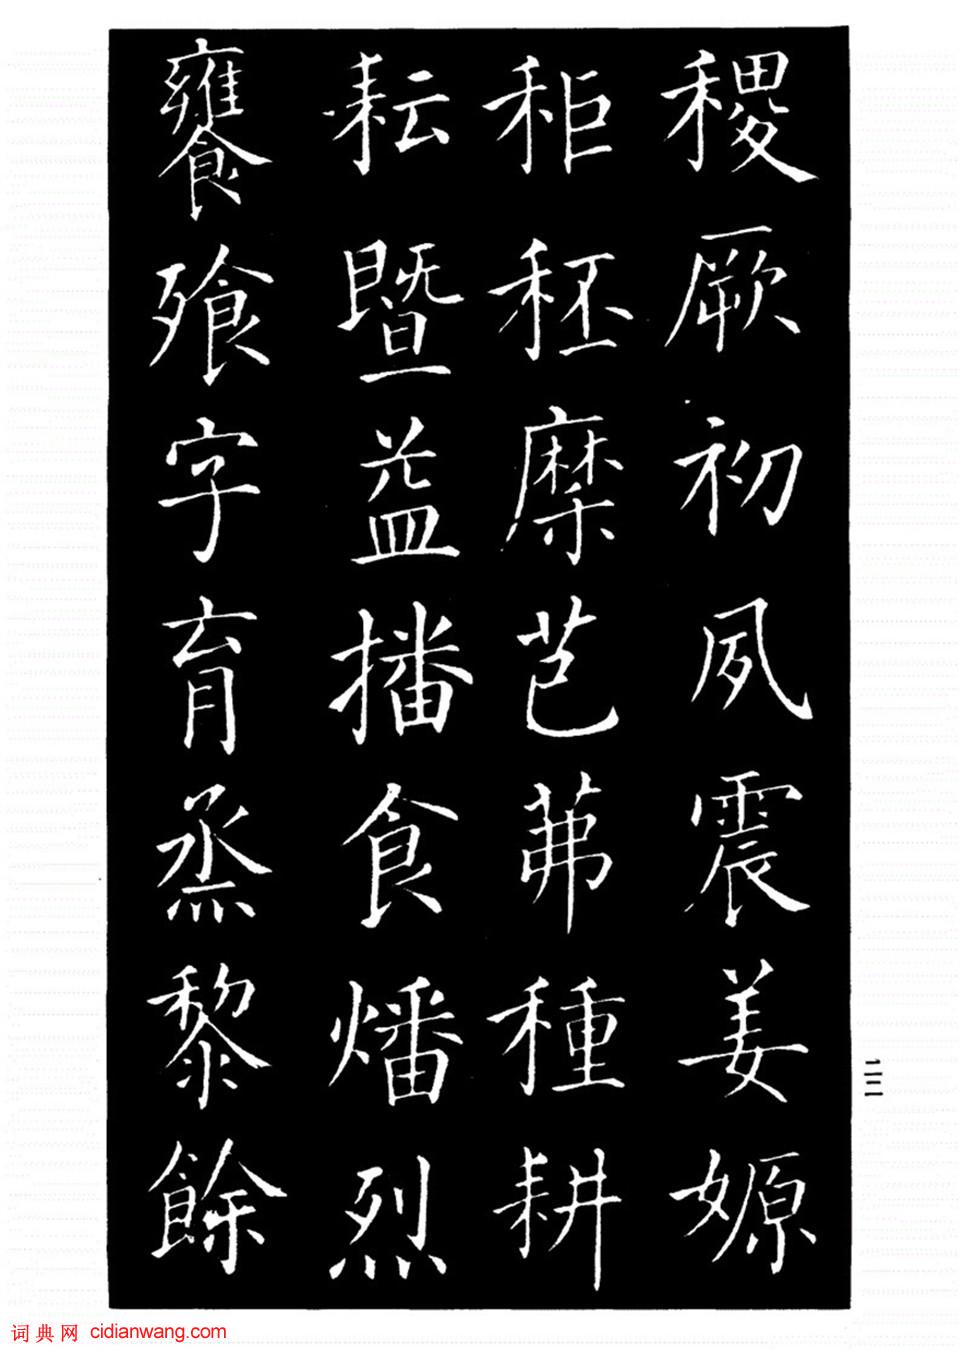 稷厥初夙震姜嫄
秬秠穈芑茀種耕
耘暨益播食燔烈
饔飱字育烝黎餘
二二
词典网 cidianwang.com